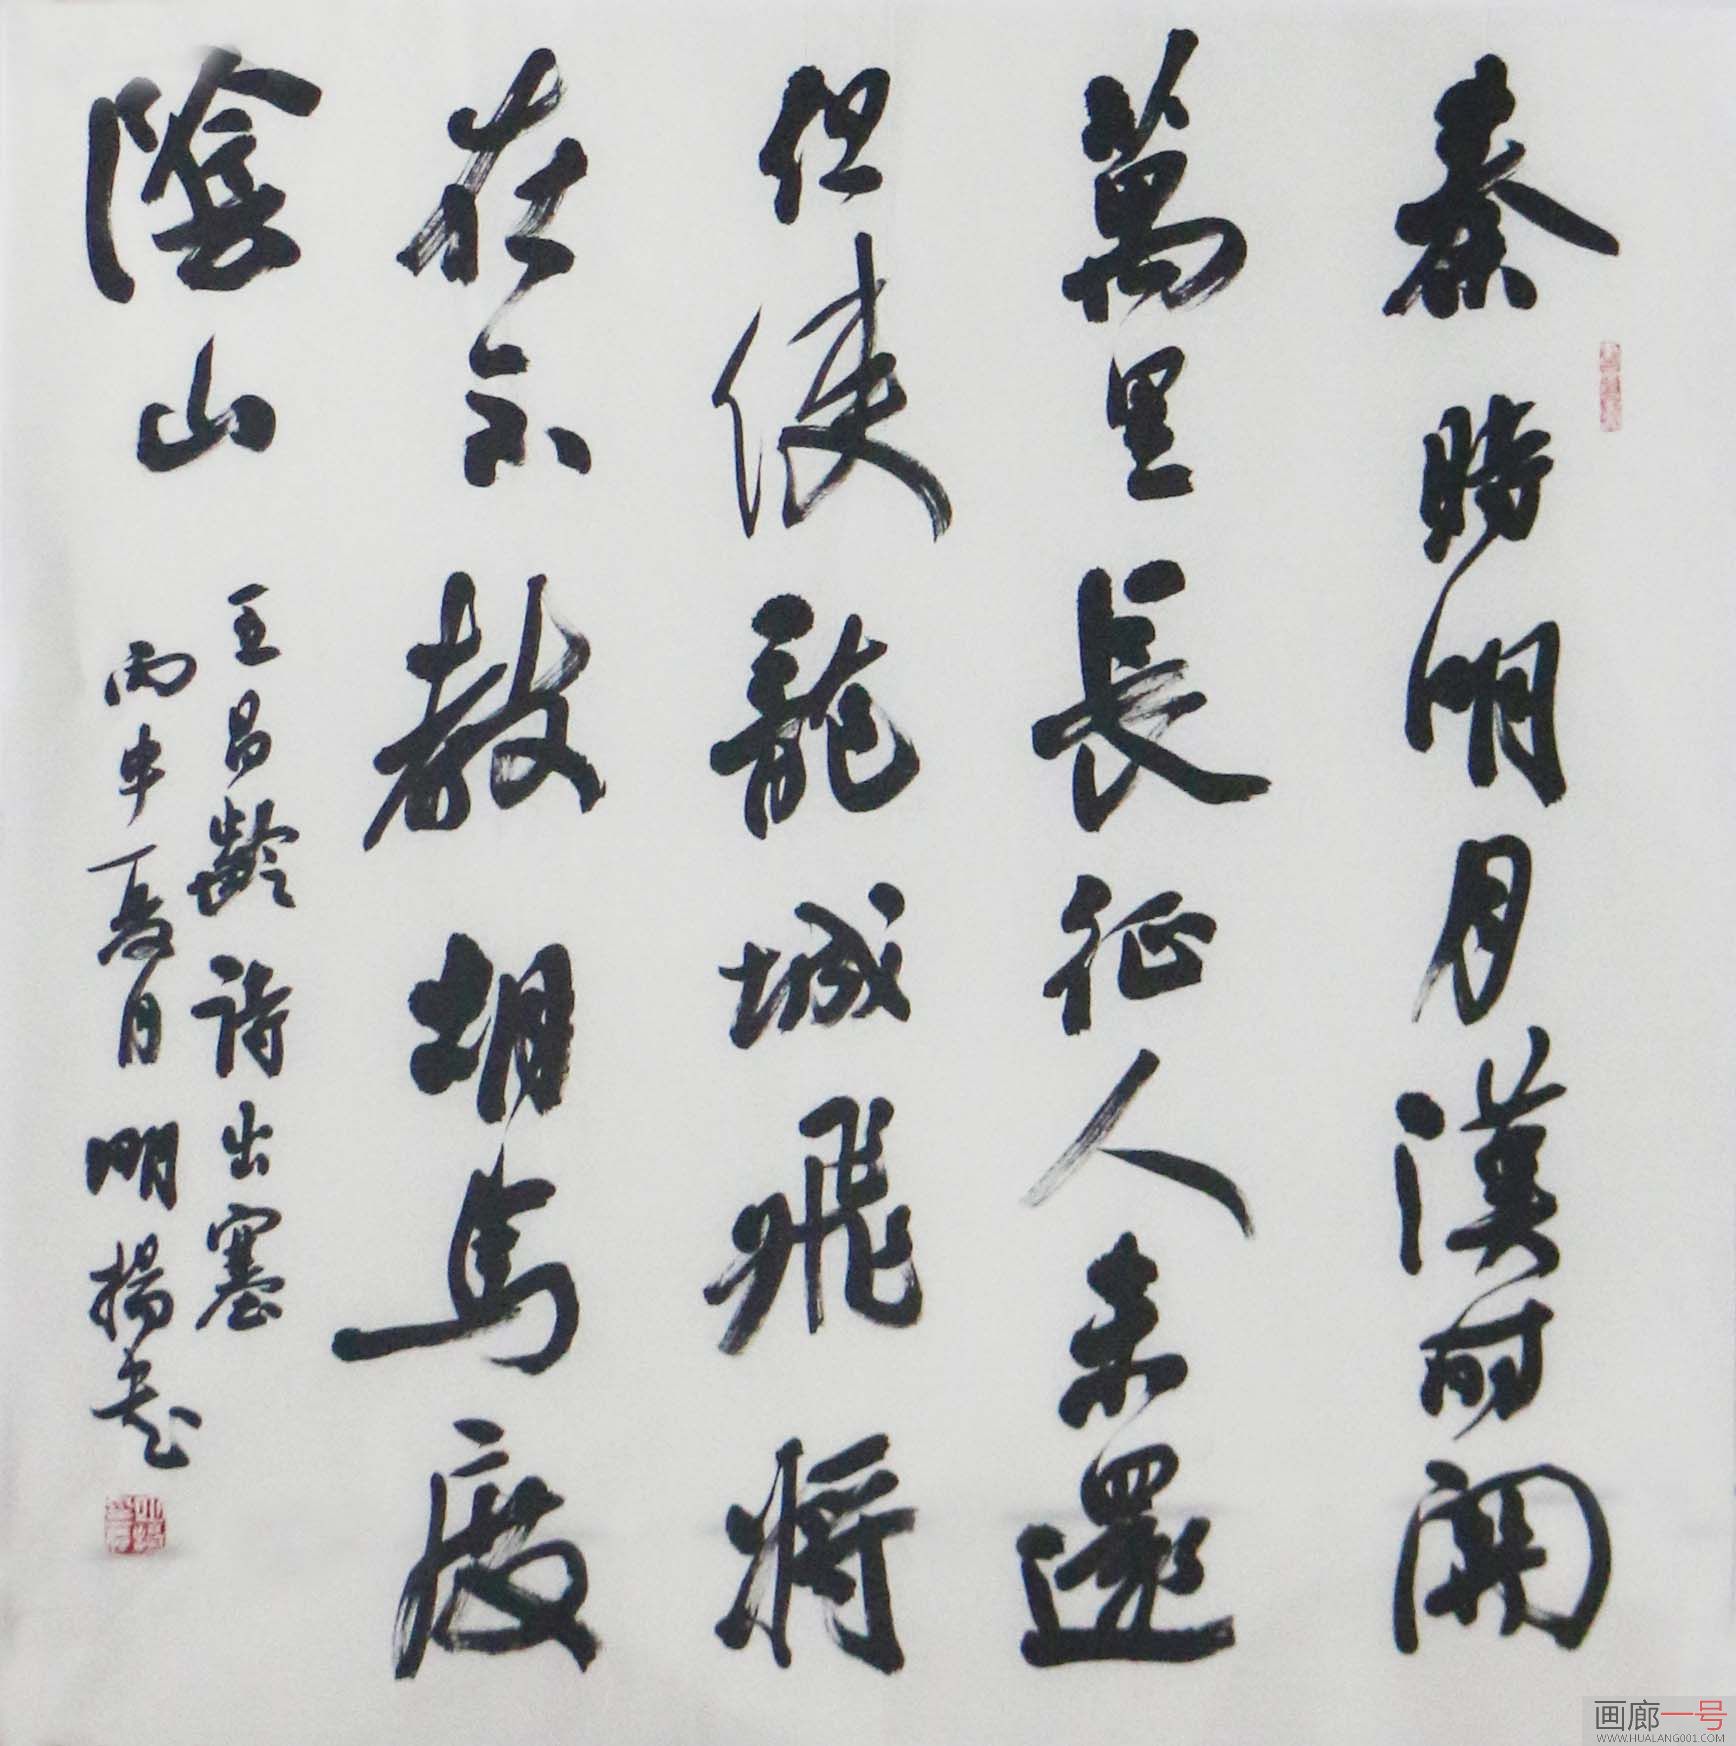 秦時明月漢時關
萬里長征人未還
但使龍城飛將
在不教胡馬度
陰山
王昌齡詩出塞
丙申夏月明揚書
画廊一号
WWW.HUALANG001.COM